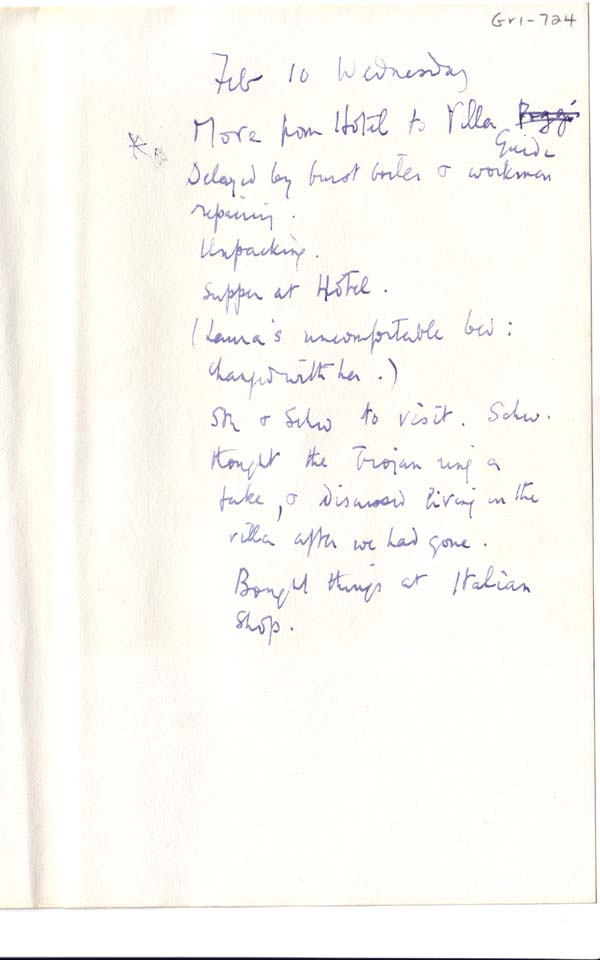 Gr1-724
Feb 10 Wednesday
Move from Hotel to Villa
Guide
Delayed by burst boiler & workmen
repairing.
Unpacking.
Supper at Hotel.
(Laura's uncomfortable bed:
changed with her.)
Sth & Schw to visit. Schw.
thought the Trojan ring a
fake, & discussed living in the
villa after we had gone.
Bought things at Italian
Shop.